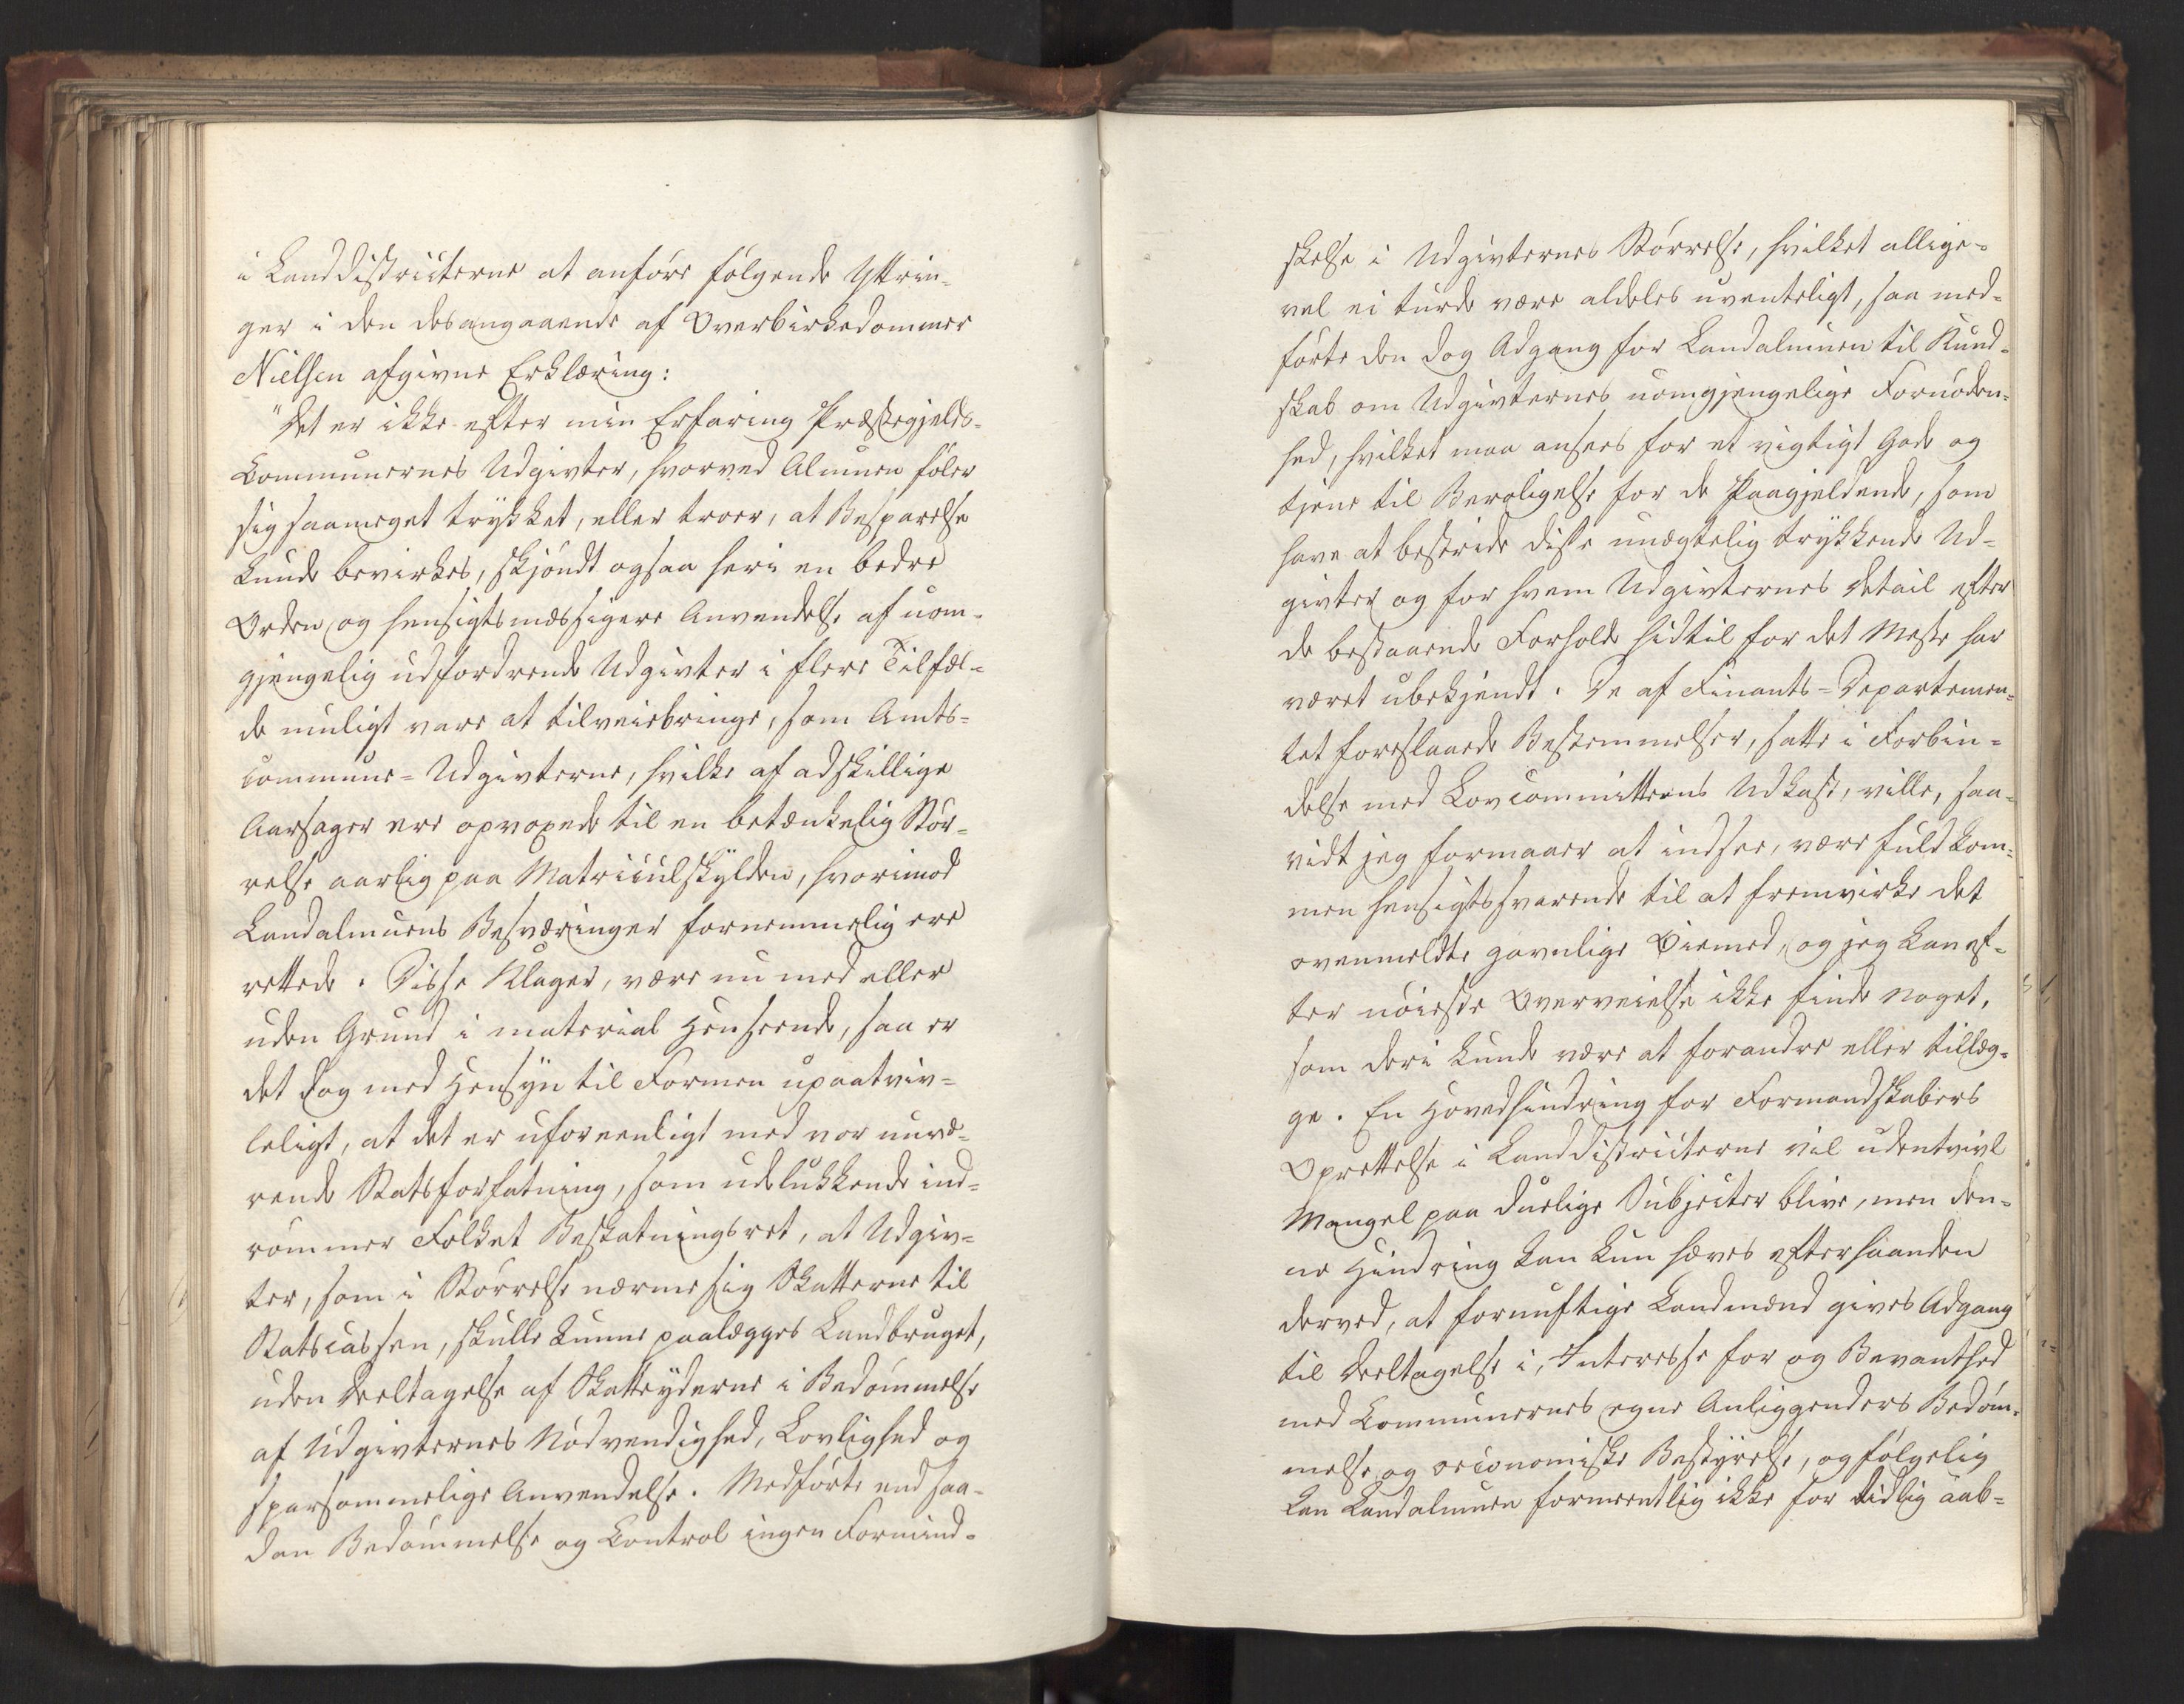 i Landdistricterne at anføre følgende Yttrin-
ger i den desangaaende af Overbirkedommer
Nielsen afgivne Erklæring:
"Det er ikke efter min Erfaring Præstegjelds-
Communernes Udgivter, hvorved Almuen føler
sig saameget trykket, eller troer, at Besparelse
kunde bevirkes, skjøndt ogsaa heri en bedre
Orden og hensigtsmæssigere Anvendelse af uom-
gjengelig udfordrende Udgivter i flere Tilfæl-
de muligt være at tilveiebringe, som Amts-
commune-Udgivterne, hvilke af adskillige
Aarsager ere opvoxede til en betænkelig Stør-
relse aarlig paa Matriculskylden, hvorimod
Landalmuens Besværinger fornemmelig ere
rettede. Disse Klager, være nu med eller
uden Grund i material Henseende, saa er
det dog med Hensyn til Formen upaatviv-
leligt, at det er uforeenligt med vor nuvæ-
rende Statsforfatning, som udelukkende ind-
rømmer Folket Beskatningsret, at Udgiv-
ter, som i Størrelse nærme sig Skatterne til
Statscassen, skulle kunne paalægges Landbruget,
uden Deeltagelse af Skatteyderne i Bedømmelse
af Udgivternes Nødvendighed, Lovlighed og
sparsommelige Anvendelse. Medførte end saa-
dan Bedømmelse og Control ingen Formind-
skelse i Udgivternes Størrelse, hvilket allige-
vel ei turde være aldeles uventeligt, saa med-
førte den dog Adgang for Landalmuen til Kund-
skab om Udgivternes uomgjengelige Fornøden-
hed, hvilket maa ansees for et vigtigt Gode og
tjene til Beroligelse for de Paagjeldende, som
have at bestride disse unægtelig trykkende Ud-
givter og for hvem Udgivternes Detail efter
de bestaaende Forholde hidtil for det Meste har
været ubekjendt. De af Finants-Departemen-
tet foreslaaede Bestemmelser, satte i Forbin-
delse med Lovcommitteens Udkast, ville, saa-
vidt jeg formaaer at indsee, være fuldkom-
men hensigtssvarende til at fremvirke det
ovenmeldte gavnlige Øiemed, og jeg kan ef-
ter nøieste Overveielse ikke finde noget,
som deri kunde være at forandre eller tillæg-
ge. En Hovedhindring for Formandskabers
Oprettelse i Landdistricterne vil udentvivl
Mangel paa duelige Subjecter blive, men den-
ne Hindring kan kun hæves efterhaanden
derved, at fornuftige Landmænd gives Adgang
til Deeltagelse i, Interesse for og Bevanthed
med Communernes egne Anliggenders Bedøm-
melse og oeconomiske Bestyrelse, og følgelig
kan Landalmuen formeentlig ikke for tidlig aab-